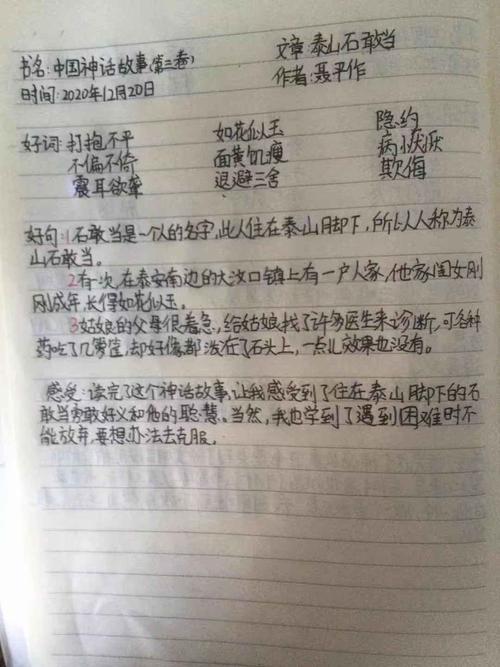 书名:中国神话故事(第三卷) 文章:泰山石敢当
时间:2020年12月20日 作者:聂平作
好词:打抱不平 如花似玉 隐约
不偏不倚 面黄饥瘦 病恹恹
震耳欲聋 退避三舍 欺侮
好句:1石敢当是一个人的名字,此人住在泰山脚下,所以人人称为泰
山石敢当。
2有一次在泰安南边的大汶口镇上有一户人家,他家闺女刚
刚成年,长得如花似玉。
3姑娘的父母很着急,给姑娘找了许多医生来诊断,可各种
药吃了几箩筐,却好像都泼在了石头上,一点儿效果也没有。
感受:读完了这个神话故事,让我感受到了住在泰山脚下的石
敢当勇敢好义和他的聪慧。当然,我也学到了遇到困难时不
能放弃,要想办法去克服。